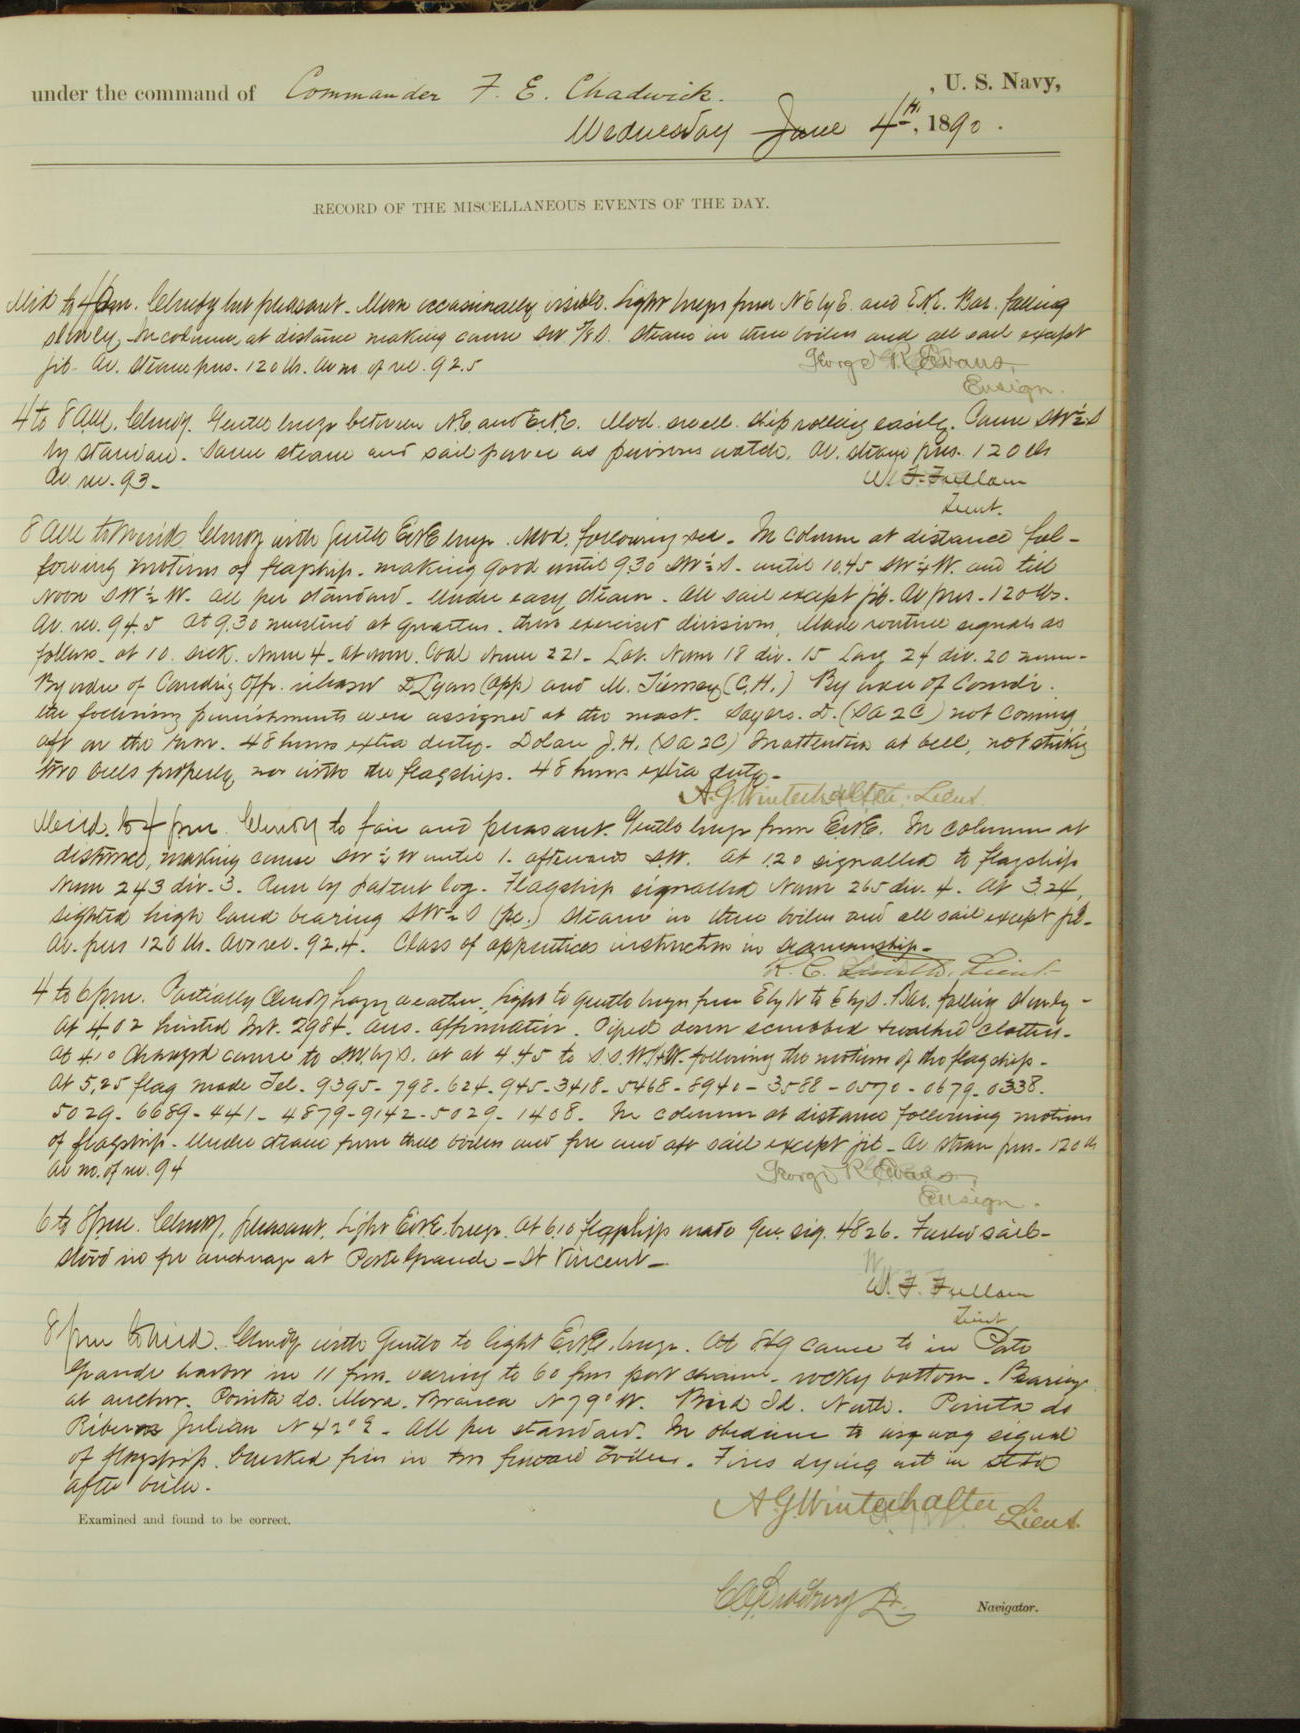 under the command of Commander F. E. Chadwick. , U. S. Navy,
Wednesday June 4th, 1890.
RECORD OF THE MISCELLANEOUS EVENTS OF THE DAY.
Mid to 4 am. Cloudy but pleasant. Moon occasionally visible. Light breeze from NE by E. and E.N.E. Bar. falling
slowly. In column at distance making course SW 7/8 S. Steam in three boilers and all sail except
jib. Av. steam pres. 120 lbs. Av no. of rev. 92.5
George R. Evans,
Ensign.
4 to 8 AM. Cloudy. Gentle breeze between N.E. and E.N.E. Mod. swell. Ship rolling easily. Course SW½S
by standard. Same steam and sail power as previous watch. Av. steam pres. 120 lbs
Av rev. 93.
W. F. Fullam
Lieut.
8 AM to Merid. Cloudy with gentle E.N.E. breeze. Mod. following sea. In column at distance fol-
lowing motions of flagship. making good until 9.30 SW½S. until 10.45 SW¼W. and till
Noon SW½W. all per standard. Under easy steam. All sail except jib. Av pres. 120 lbs.
Av. rev. 94.5 At 9.30 mustered at quarters. then exercised divisions. Made routine signals as
follows. at 10. sick. Num 4. at noon. Coal Num 221. Lat. Num 18 div. 15 Long 24 div. 20 num.
By order of Comdg Offr. released D Lyons (app) and M. Tierney (C.H.) By order of Comdr.
the following punishments were assigned at the mast. Sayers. D. (SA2C) not coming
aft on the run. 48 hours extra duty. Dolan J.H. (SA2C) Inattention at bell, not striking
two bells properly, nor with the flagship. 48 hours extra duty.
A. G. Winterhalter, Lieut.
Merid. to 4 pm. Cloudy to fair and pleasant. Gentle breeze from E.N.E. In column at
distance, making course SW½W until 1. afterwards SW. At 1.20 signalled to flagship
Num 243 div. 3. Run by patent log. Flagship signalled Num 265 div. 4. At 3.24,
sighted high land bearing SW½S (pc.) Steam in three boilers and all sail except jib.
Av. pres 120 lb. Av rev. 92.4. Class of apprentices instruction in seamanship.
Lieut.
4 to 6 pm. Partially cloudy hazy weather. Light to gentle breeze from E by N to E by S. Bar. falling slowly.
At 4.02 hoisted Int. 2984. Ans. affirmative. Piped down scrubbed & washed clothes.
At 4.10 changed course to SW by S. at 4.45 to S.S.W. following the motions of the flagship.
At 5.25 flag made Tel. 9395 - 798 - 624 - 945 - 3418 - 5468 - 8940 - 3588 - 0570 - 0679. 0338.
5029 - 6689 - 441 - 4879 - 9142 - 5029 - 1408. In column at distance following motions
of flagship. Under steam from three boilers and fore and aft sail except jib. Av steam pres. 120 lb
Av no. of rev. 94
George R. Evans,
Ensign.
6 to 8 pm. Cloudy, pleasant. Light E.N.E. breeze. At 6.10 flagship made Gen. sig. 4826. Furled sail.
Stood in for anchorage at Porto Grande - St Vincent.
W. F. Fullam
Lieut
8 pm to Mid. Cloudy with gentle to light E.N.E. breeze. At came to in Porto
Grande harbor in 11 fms. veering to 60 fms port chain. rocky bottom. Bearings
at anchor. Pointa do. Mora. Branca N 79° W. Bird Id. North. Pointa do
Ribeira Julian N 42° E. All per standard. In obedience to wig wag signal
of flagship. banked fires in two forward boilers. Fires dying out in
after boiler.
A. G. Winterhalter Lieut.
Examined and found to be correct.
Navigator.